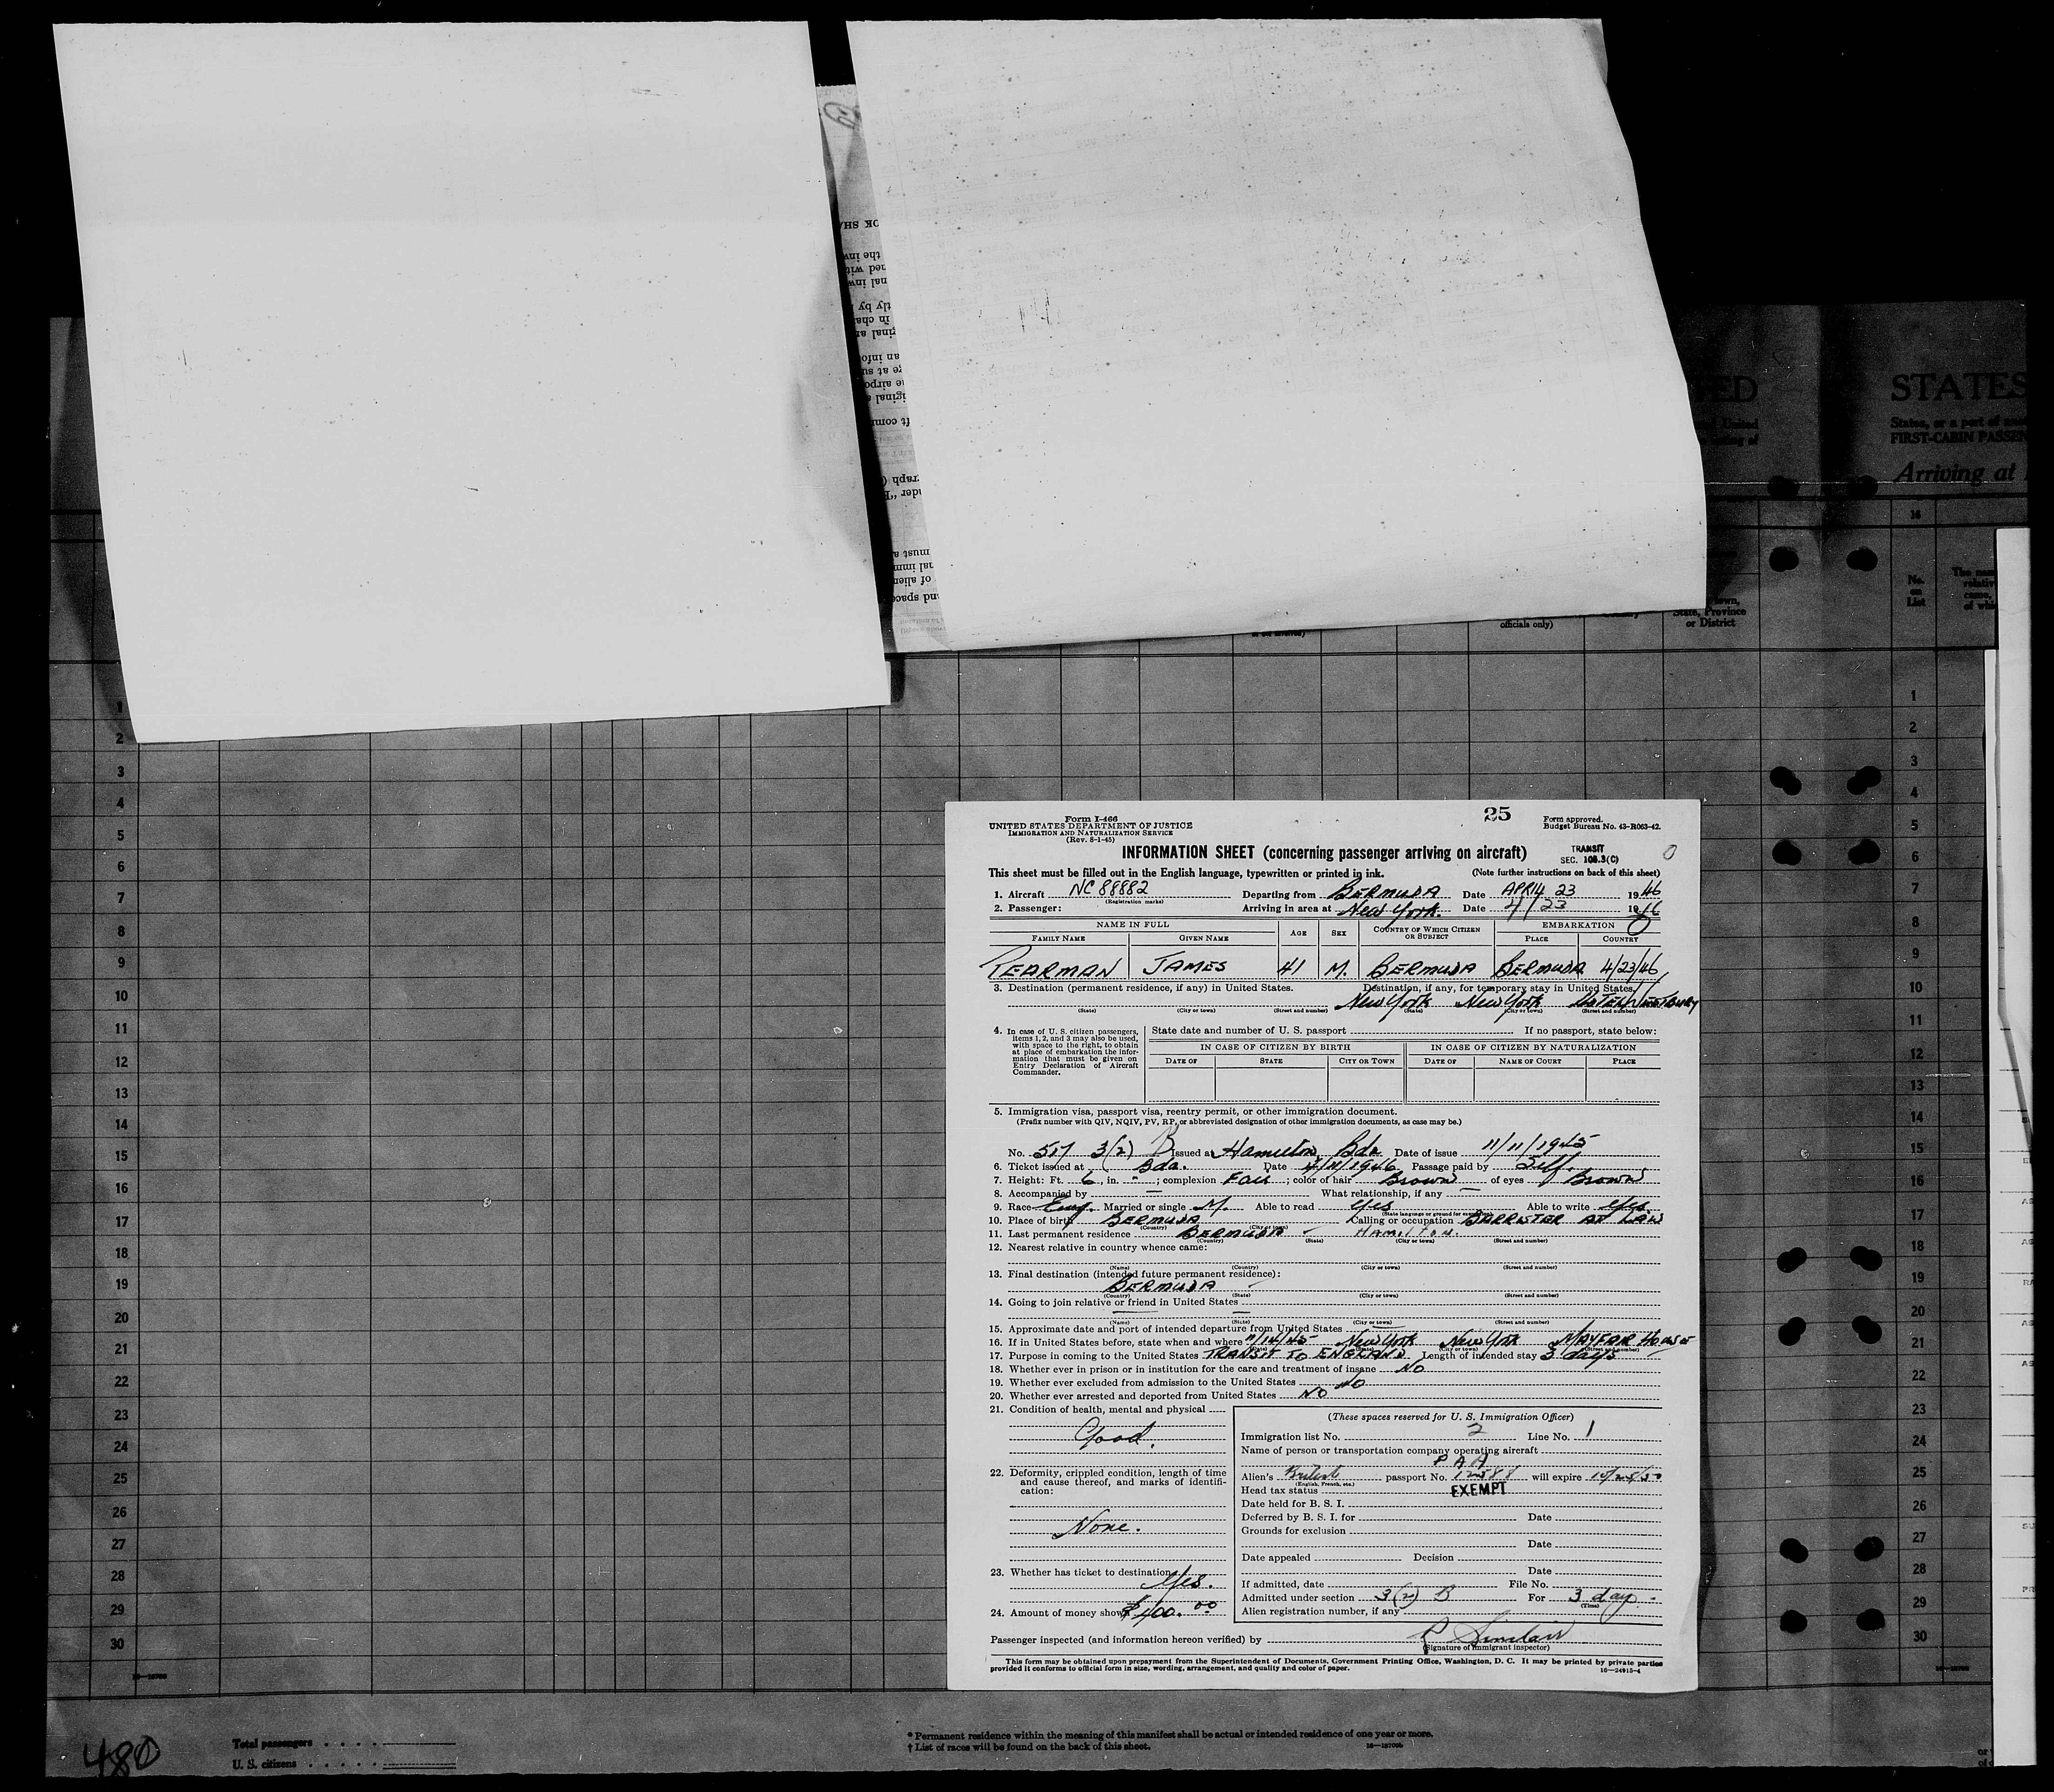 OK SHA
the inv
ned wit
nal inv
tly by
in cha
ginal an
an info
ge at su
he airpo
iginal
ft comm
raph (
der "E
must a
nal imm
of alien
and space
STATES
States, or a part of
FIRST-CABIN PASSEN
Arriving at
16
No. on List
town,
State, Province
or District
officials only)
Form I-466
UNITED STATES DEPARTMENT OF JUSTICE
IMMIGRATION AND NATURALIZATION SERVICE
(Rev. 8-1-45)
25
Form approved.
Budget Bureau No. 43-R063-42.
INFORMATION SHEET (concerning passenger arriving on aircraft)
TRANSIT
SEC. 108.3(C)
0
This sheet must be filled out in the English language, typewritten or printed in ink. (Note further instructions on back of this sheet)
1. Aircraft NC 88882 Departing from BERMUDA Date APRIL 23 1946
(Registration marks)
2. Passenger: Arriving in area at New York. Date 4/23 1946
NAME IN FULL AGE SEX COUNTRY OF WHICH CITIZEN OR SUBJECT EMBARKATION
FAMILY NAME GIVEN NAME PLACE COUNTRY
PEARMAN JAMES 41 M. BERMUDA BERMUDA 4/23/46
3. Destination (permanent residence, if any) in United States. Destination, if any, for temporary stay in United States.
New York New York HOTEL WESTBURY
(State) (City or town) (Street and number) (State) (City or town) (Street and number)
4. In case of U. S. citizen passengers, items 1, 2, and 3 may also be used, with space to the right, to obtain at place of embarkation the information that must be given on Entry Declaration of Aircraft Commander.
State date and number of U. S. passport If no passport, state below:
IN CASE OF CITIZEN BY BIRTH IN CASE OF CITIZEN BY NATURALIZATION
DATE OF STATE CITY OR TOWN DATE OF NAME OF COURT PLACE
5. Immigration visa, passport visa, reentry permit, or other immigration document.
(Prefix number with QIV, NQIV, PV, RP, or abbreviated designation of other immigration documents, as case may be.)
No. 517 3(2) B Issued at Hamilton Bda Date of issue 11/11/1945
6. Ticket issued at Bda. Date 4/11/1946 Passage paid by Self.
7. Height: Ft. 6, in. " ; complexion Fair ; color of hair Brown of eyes Brown
8. Accompanied by — What relationship, if any —
9. Race Eng. Married or single M. Able to read Yes Able to write Yes.
10. Place of birth BERMUDA Calling or occupation BARRISTER AT LAW
(Country) (City or town)
11. Last permanent residence BERMUDA Hamilton.
(Country) (State) (City or town) (Street and number)
12. Nearest relative in country whence came:
(Name) (Country) (City or town) (Street and number)
13. Final destination (intended future permanent residence):
BERMUDA
(Country) (State) (City or town) (Street and number)
14. Going to join relative or friend in United States
(Name) (State) (City or town) (Street and number)
15. Approximate date and port of intended departure from United States —
16. If in United States before, state when and where 11/14/45 New York New York MAYFAIR HOUSE
17. Purpose in coming to the United States TRANSIT TO ENGLAND Length of intended stay 3 days
18. Whether ever in prison or in institution for the care and treatment of insane NO
19. Whether ever excluded from admission to the United States NO
20. Whether ever arrested and deported from United States NO
21. Condition of health, mental and physical
Good.
22. Deformity, crippled condition, length of time and cause thereof, and marks of identification:
None.
23. Whether has ticket to destination
Yes.
24. Amount of money shown $400.00
(These spaces reserved for U. S. Immigration Officer)
Immigration list No. 2 Line No. 1
Name of person or transportation company operating aircraft
P A A
Alien's British passport No. 12588 will expire 10/25/50
(English, French, etc.)
Head tax status EXEMPT
Date held for B. S. I.
Deferred by B. S. I. for Date
Grounds for exclusion
Date
Date appealed Decision
Date
If admitted, date File No.
Admitted under section 3(2) B For 3 day.
(Time)
Alien registration number, if any
Passenger inspected (and information hereon verified) by P Sinclair
(Signature of immigrant inspector)
This form may be obtained upon prepayment from the Superintendent of Documents, Government Printing Office, Washington, D. C. It may be printed by private parties
provided it conforms to official form in size, wording, arrangement, and quality and color of paper. 16—24915-4
1 1
2 2
3 3
4 4
5 5
6 6
7 7
8 8
9 9
10 10
11 11
12 12
13 13
14 14
15 15
16 16
17 17
18 18
19 19
20 20
21 21
22 22
23 23
24 24
25 25
26 26
27 27
28 28
29 29
30 30
* Permanent residence within the meaning of this manifest shall be actual or intended residence of one year or more.
† List of races will be found on the back of this sheet.
Total passengers
U. S. citizens
480